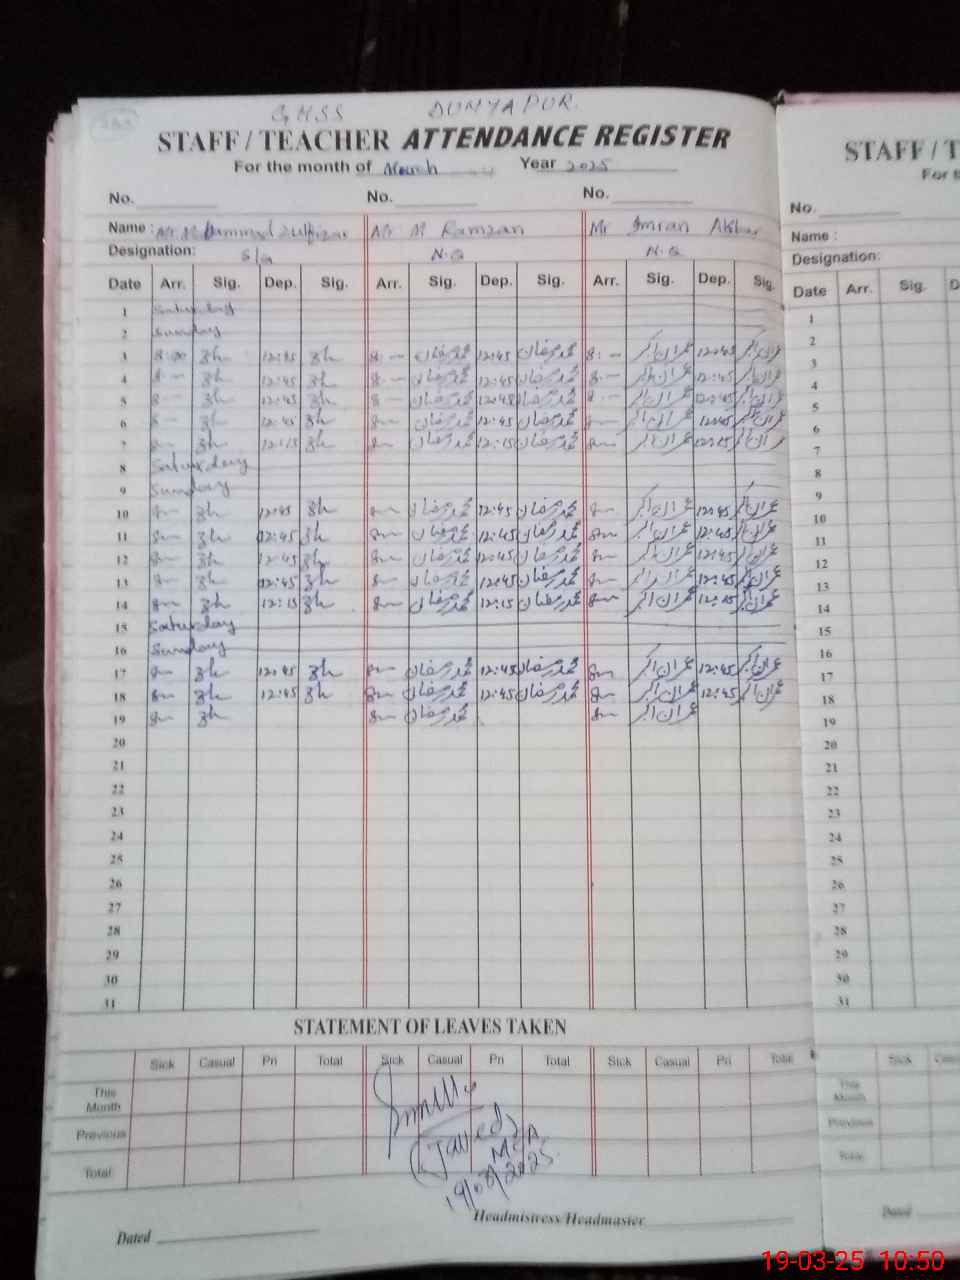 GHSS DUNYAPUR.
STAFF / TEACHER ATTENDANCE REGISTER
For the month of March Year 2025
No. No. No.
Name : Mr. Muhammad Zulfiqar Mr M Ramzan Mr Imran Akbar
Designation: S/G N.Q N.Q
Date Arr. Sig. Dep. Sig. Arr. Sig. Dep. Sig. Arr. Sig. Dep. Sig.
1 Saturday
2 Sunday
3 8:00 12:45 8:— محمد رمضان 12:45 محمد رمضان 8:— عمران اکبر 12:45 عمران اکبر
4 8:— 12:45 8:— محمد رمضان 12:45 محمد رمضان 8:— عمران اکبر 12:45 عمران اکبر
5 8:— 12:45 8:— محمد رمضان 12:45 محمد رمضان 8:— عمران اکبر 12:45 عمران اکبر
6 8— 12:45 8— محمد رمضان 12:45 محمد رمضان 8— عمران اکبر 12:45 عمران اکبر
7 8— 12:15 8— محمد رمضان 12:15 محمد رمضان 8— عمران اکبر 12:15 عمران اکبر
8 Saturday
9 Sunday
10 8— 12:45 8— محمد رمضان 12:45 محمد رمضان 8— عمران اکبر 12:45 عمران اکبر
11 8— 12:45 8— محمد رمضان 12:45 محمد رمضان 8— عمران اکبر 12:45 عمران اکبر
12 8— 12:45 8— محمد رمضان 12:45 محمد رمضان 8— عمران اکبر 12:45 عمران اکبر
13 8— 12:45 8— محمد رمضان 12:45 محمد رمضان 8— عمران اکبر 12:45 عمران اکبر
14 8— 12:15 8— محمد رمضان 12:15 محمد رمضان 8— عمران اکبر 12:15 عمران اکبر
15 Saturday
16 Sunday
17 8— 12:45 8— محمد رمضان 12:45 محمد رمضان 8— عمران اکبر 12:45 عمران اکبر
18 8— 12:45 8— محمد رمضان 12:45 محمد رمضان 8— عمران اکبر 12:45 عمران اکبر
19 8— 8— محمد رمضان 8— عمران اکبر
20
21
22
23
24
25
26
27
28
29
30
31
STATEMENT OF LEAVES TAKEN
Sick Casual Pri Total Sick Casual Pri Total Sick Casual Pri Total
This Month
Previous
Total
(Javed)
MEA
19/03/2025
Headmistress/Headmaster
Dated
STAFF / T
For t
No.
Name :
Designation:
Date Arr. Sig. D
1
2
3
4
5
6
7
8
9
10
11
12
13
14
15
16
17
18
19
20
21
22
23
24
25
26
27
28
29
30
31
Sick Cas
This Month
Previous
Total
Dated
19-03-25 10:50